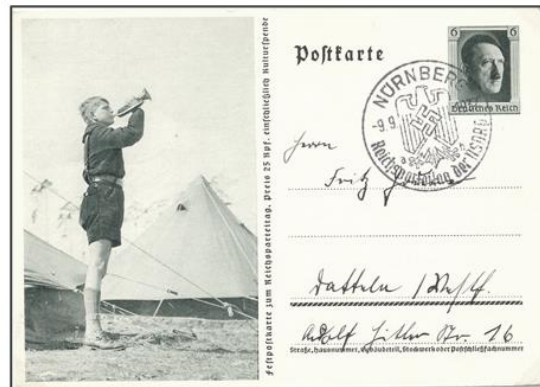 Festpostkarte zum Reichsparteitag. Preis 25 Rpf. einschließlich Kulturspende
Postkarte
6 6
Deutsches Reich
NÜRNBERG
9.9.
Reichsparteitag der NSDAP
Herrn
Fritz
Datteln / Westf.
Adolf Hitler Str. 16
Straße, Hausnummer, Gebäudeteil, Stockwerk oder Postschließfachnummer